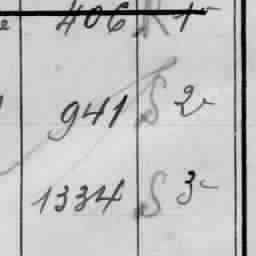 406 1
941 S 2
1334 S 3